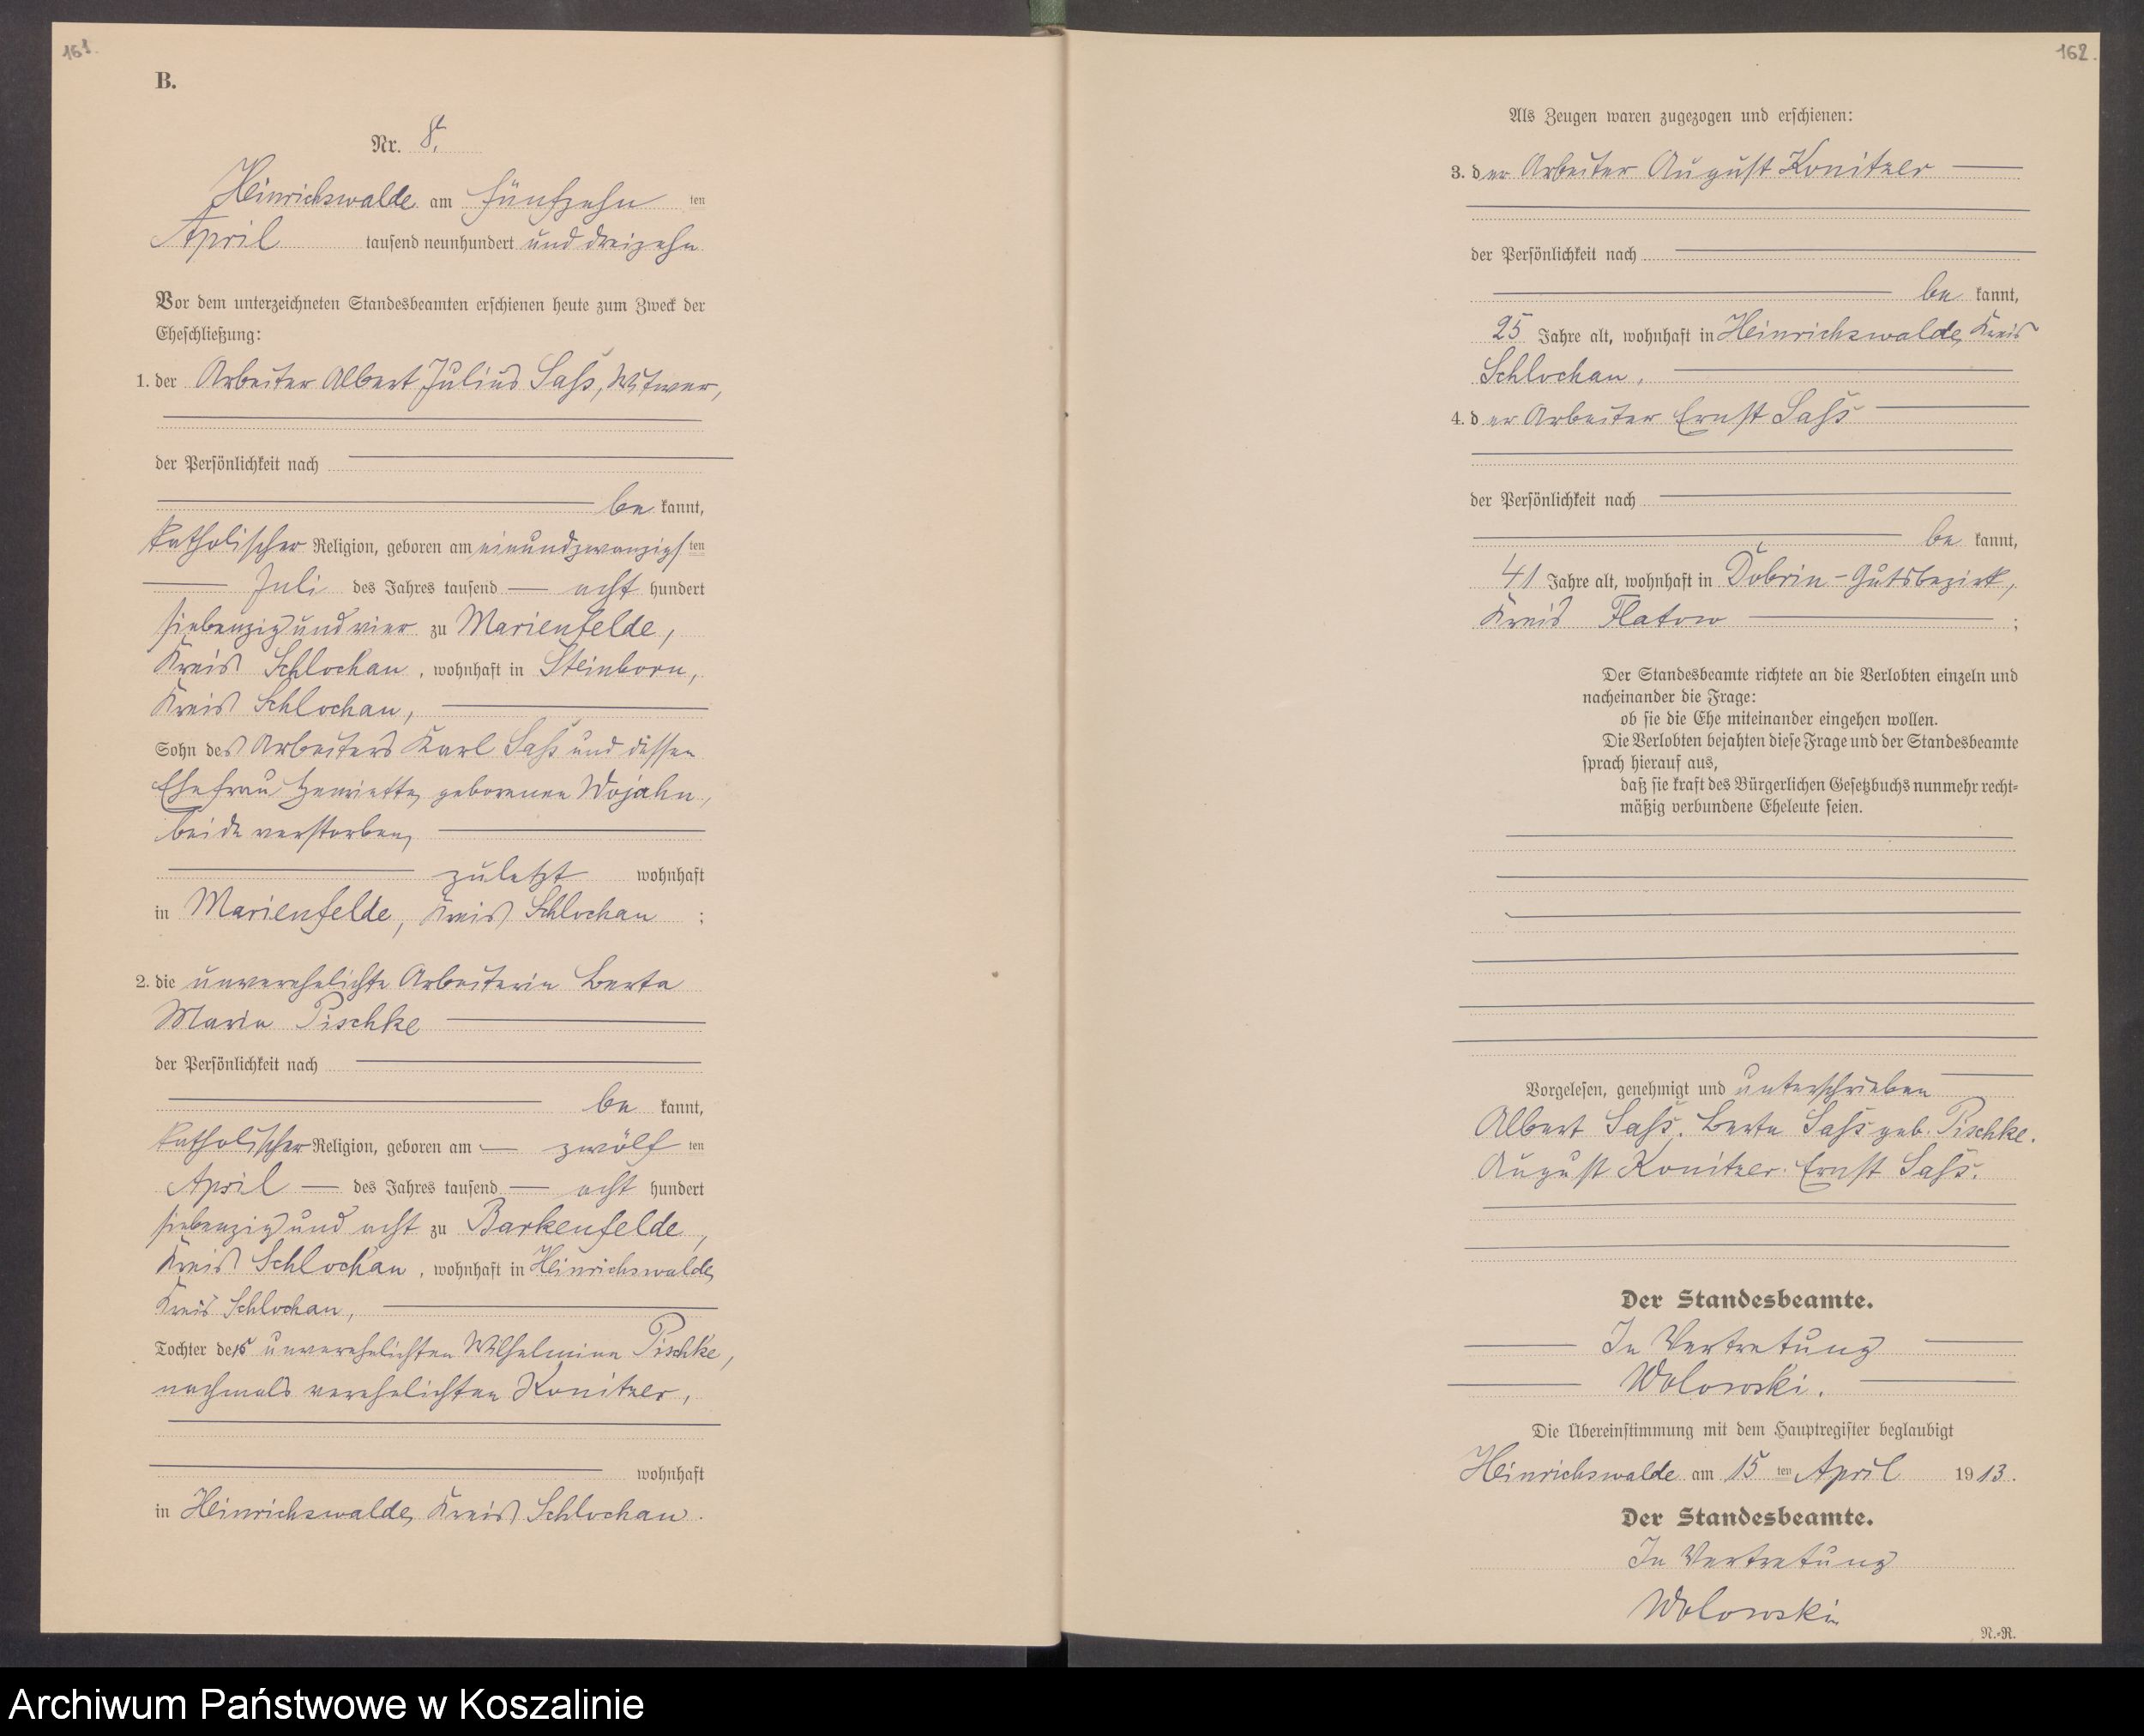 161.
B.
Nr. 8.
Heinrichswalde am fünfzehn ten
April tausend neunhundert und dreizehn
Vor dem unterzeichneten Standesbeamten erschienen heute zum Zweck der
Eheschließung:
1. der Arbeiter Albert Julius Sass, Witwer,
der Persönlichkeit nach
be kannt,
katholischer Religion, geboren am einundzwanzigsten
Juli des Jahres tausend acht hundert
siebenzig und vier zu Marienfelde,
Kreis Schlochau, wohnhaft in Steinborn,
Kreis Schlochau,
Sohn des Arbeiters Karl Sass und dessen
Ehefrau Henriette geborenen Wojahn,
beide verstorben,
zuletzt wohnhaft
in Marienfelde, Kreis Schlochau ;
2. die unverehelichte Arbeiterin Berta
Maria Pischke
der Persönlichkeit nach
be kannt,
katholischer Religion, geboren am zwölf ten
April des Jahres tausend acht hundert
siebenzig und acht zu Barkenfelde,
Kreis Schlochau, wohnhaft in Heinrichswalde,
Kreis Schlochau,
Tochter der unverehelichten Wilhelmine Pischke,
nachmals verehelichten Konitzer,
wohnhaft
in Heinrichswalde, Kreis Schlochau.
162.
Als Zeugen waren zugezogen und erschienen:
3. der Arbeiter August Konitzer
der Persönlichkeit nach
be kannt,
25 Jahre alt, wohnhaft in Heinrichswalde, Kreis
Schlochau,
4. der Arbeiter Ernst Sass
der Persönlichkeit nach
be kannt,
41 Jahre alt, wohnhaft in Dobrin-Gutsbezirk,
Kreis Flatow ;
Der Standesbeamte richtete an die Verlobten einzeln und
nacheinander die Frage:
ob sie die Ehe miteinander eingehen wollen.
Die Verlobten bejahten diese Frage und der Standesbeamte
sprach hierauf aus,
daß sie kraft des Bürgerlichen Gesetzbuchs nunmehr recht-
mäßig verbundene Eheleute seien.
Vorgelesen, genehmigt und unterschrieben
Albert Sass. Berta Sass geb. Pischke.
August Konitzer. Ernst Sass.
Der Standesbeamte.
In Vertretung
Wolowski.
Die Übereinstimmung mit dem Hauptregister beglaubigt
Heinrichswalde am 15 ten April 1913.
Der Standesbeamte.
In Vertretung
Wolowski
N.-R.
Archiwum Państwowe w Koszalinie